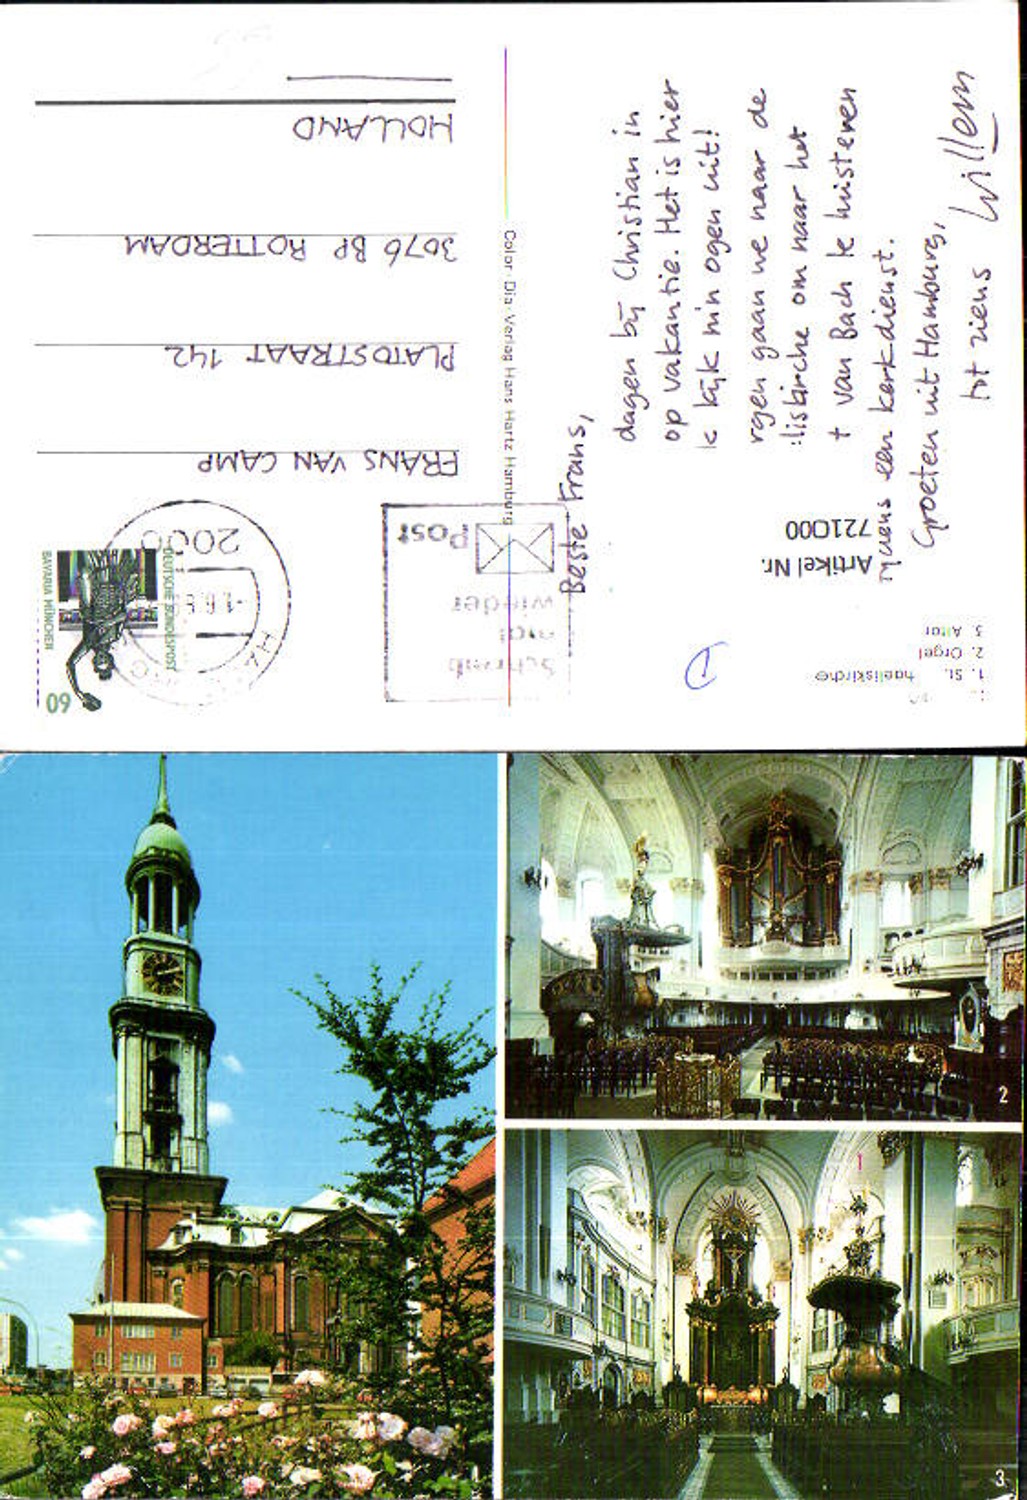 Beste Frans,
dagen bij Christian in
op vakantie. Het is hier
k kijk m'n ogen uit!
rgen gaan we naar de
liskirche om naar het
t van Bach te luisteren
een kerkdienst.
Groeten uit Hamburg,
tot ziens Willem
60
DEUTSCHE BUNDESPOST
BAVARIA MÜNCHEN
2000
Schreib
mal
wieder
Post
FRANS VAN CAMP
PLATOSTRAAT 142
3076 BP ROTTERDAM
HOLLAND
Color-Dia-Verlag Hans Hartz Hamburg
1. St. haeliskirche
2. Orgel
3. Altar
Artikel Nr.
721000
2
3